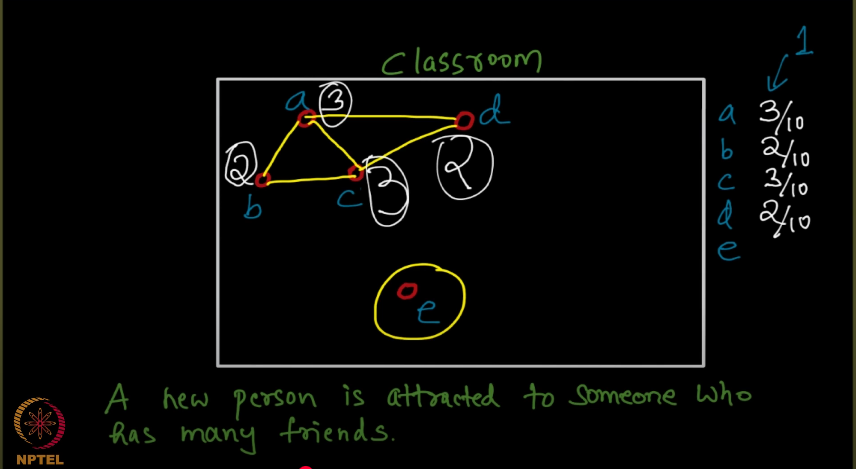 1
Classroom
a 3 d
a 3/10
b 2/10
2 c 3 2
c 3/10
b
d 2/10
e
e
A new person is attracted to someone who
has many friends.
NPTEL